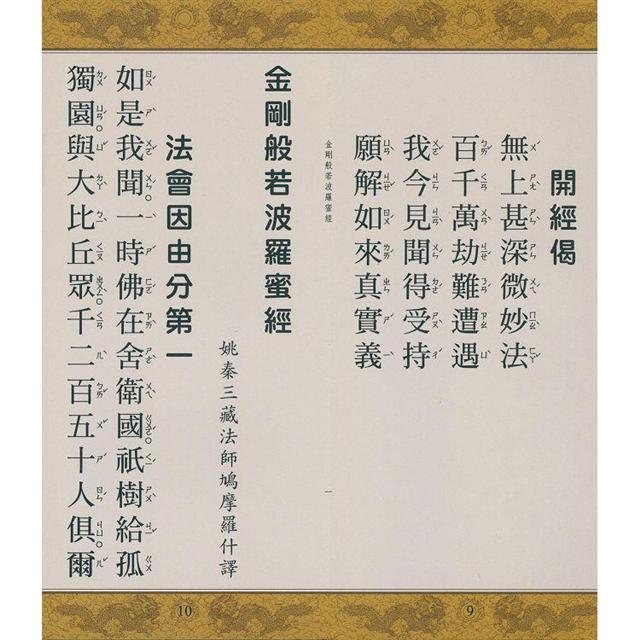 開經偈
無上甚深微妙法
百千萬劫難遭遇
我今見聞得受持
願解如來真實義
金剛般若波羅蜜經
一
金剛般若波羅蜜經
姚秦三藏法師鳩摩羅什譯
法會因由分第一
如是我聞一時佛在舍衛國祇樹給孤
獨園與大比丘眾千二百五十人俱爾
9
10